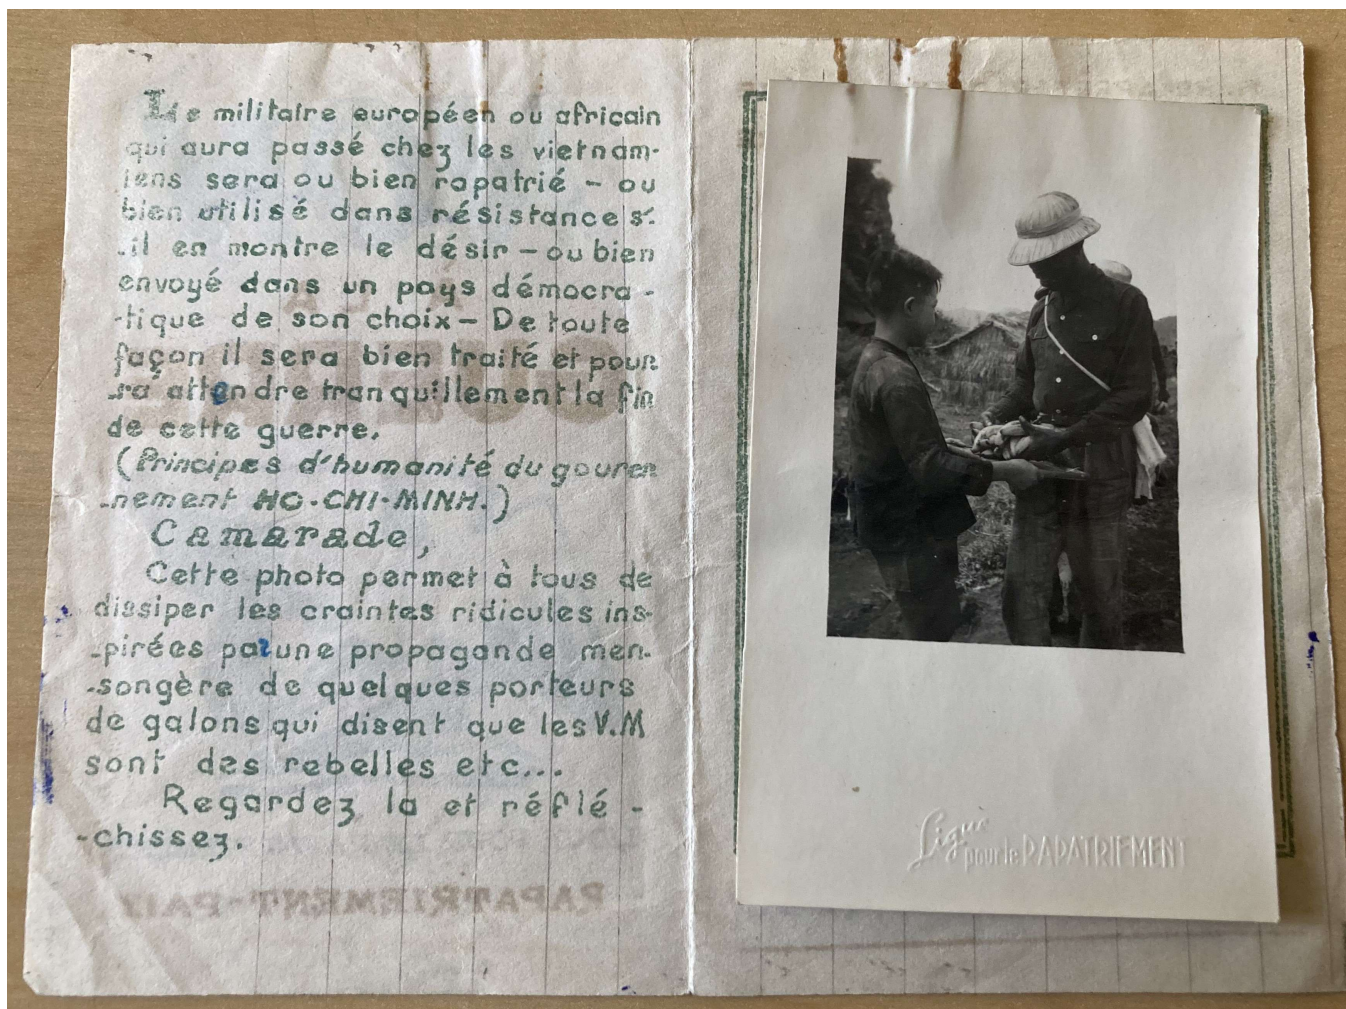 Le militaire européen ou africain
qui aura passé chez les vietnam-
iens sera ou bien rapatrié - ou
bien utilisé dans résistance s'
-il en montre le désir - ou bien
envoyé dans un pays démocra-
-tique de son choix - De toute
façon il sera bien traité et pour
-ra attendre tranquillement la fin
de cette guerre.
(Principes d'humanité du gouver
-nement HO-CHI-MINH.)
Camarade,
Cette photo permet à tous de
dissiper les craintes ridicules ins-
-pirées par une propagande men-
-songère de quelques porteurs
de galons qui disent que les V.M
sont des rebelles etc...
Regardez la et réflé-
-chissez.
RAPATRIEMENT-PAIX
Ligue
pour le RAPATRIEMENT